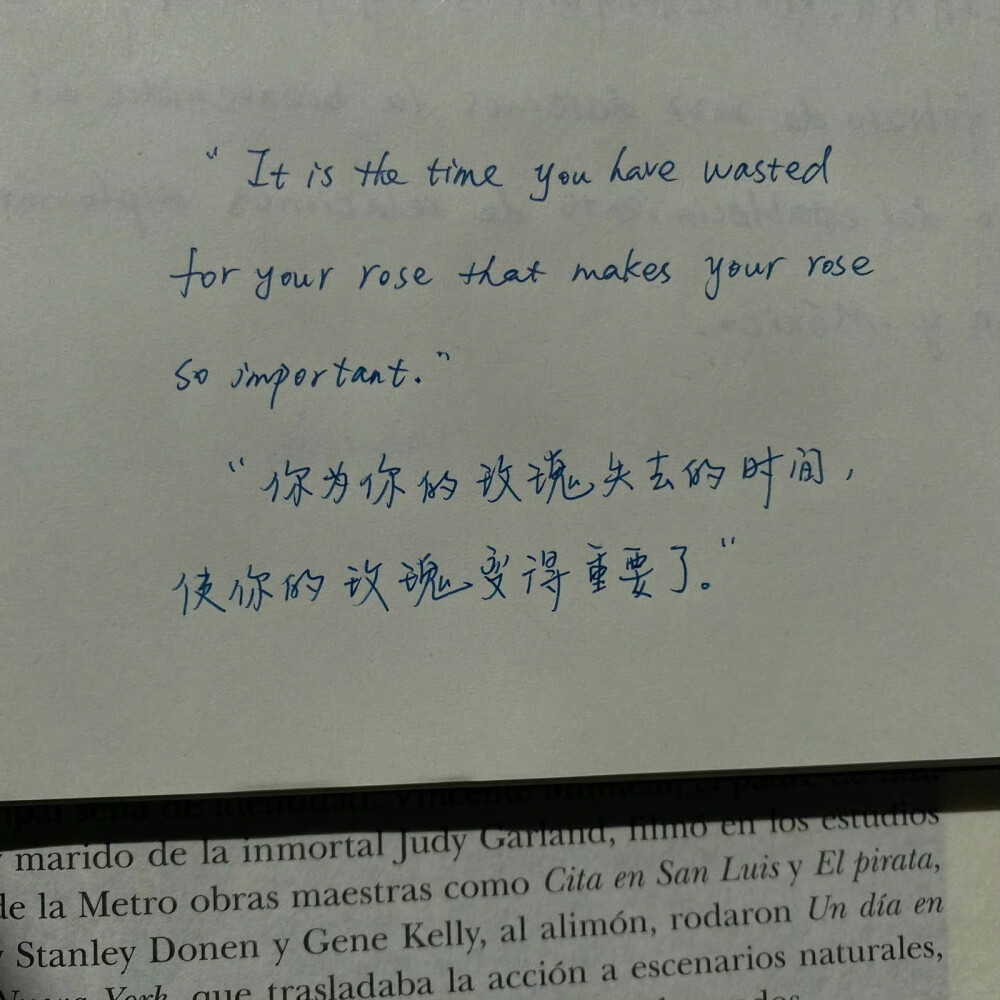 “ It is the time you have wasted
for your rose that makes your rose
so important.”
“你为你的玫瑰失去的时间，
使你的玫瑰变得重要了。”
marido de la inmortal Judy Garland, filmó en los estudios
de la Metro obras maestras como Cita en San Luis y El pirata,
y Stanley Donen y Gene Kelly, al alimón, rodaron Un día en
York, que trasladaba la acción a escenarios naturales,